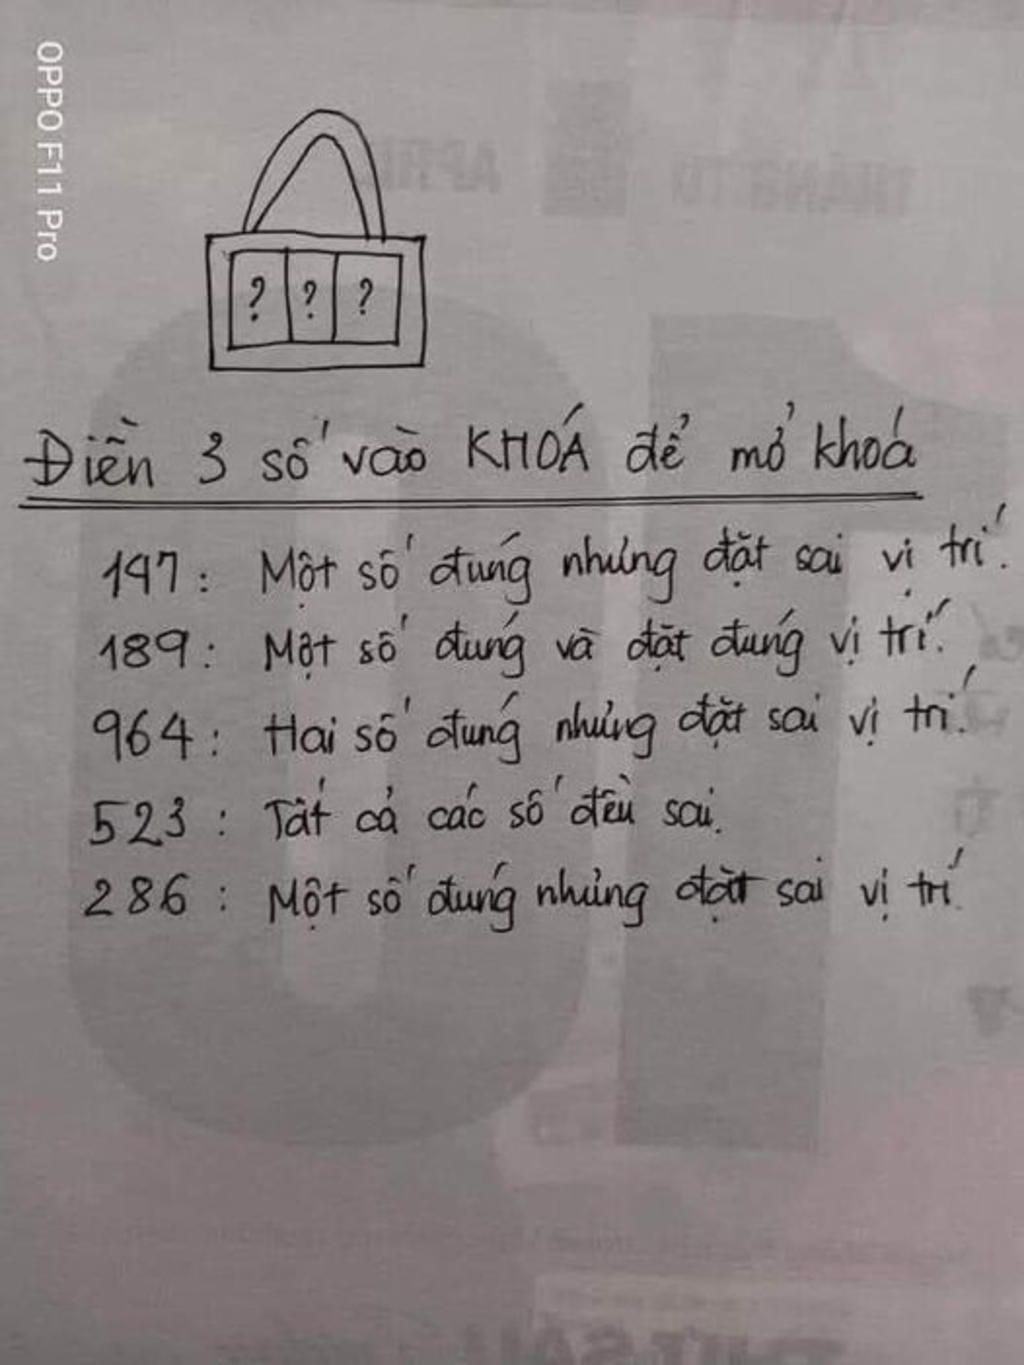 OPPO F11 Pro
? ? ?
Điền 3 số vào KHOÁ để mở khoá
147: Một số đúng nhưng đặt sai vị trí.
189: Một số đúng và đặt đúng vị trí.
964: Hai số đúng nhưng đặt sai vị trí.
523: Tất cả các số đều sai.
286: Một số đúng nhưng đặt sai vị trí.
THÁNG TƯ
APRIL
01